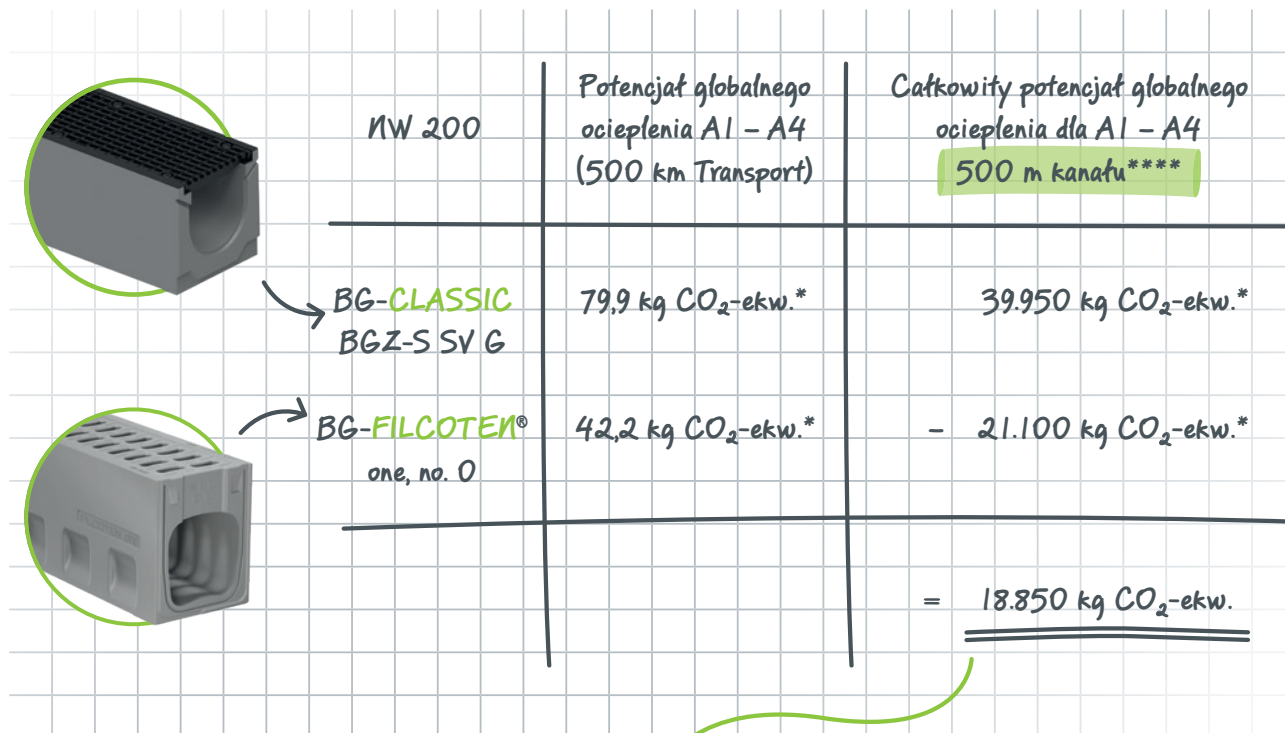 NW 200
Potencjał globalnego
ocieplenia A1 – A4
(500 km Transport)
Całkowity potencjał globalnego
ocieplenia dla A1 – A4
500 m kanału****
BG-CLASSIC
BGZ-S SV G
79,9 kg CO₂-ekw.*
39.950 kg CO₂-ekw.*
BG-FILCOTEN®
one, no. 0
42,2 kg CO₂-ekw.*
– 21.100 kg CO₂-ekw.*
= 18.850 kg CO₂-ekw.